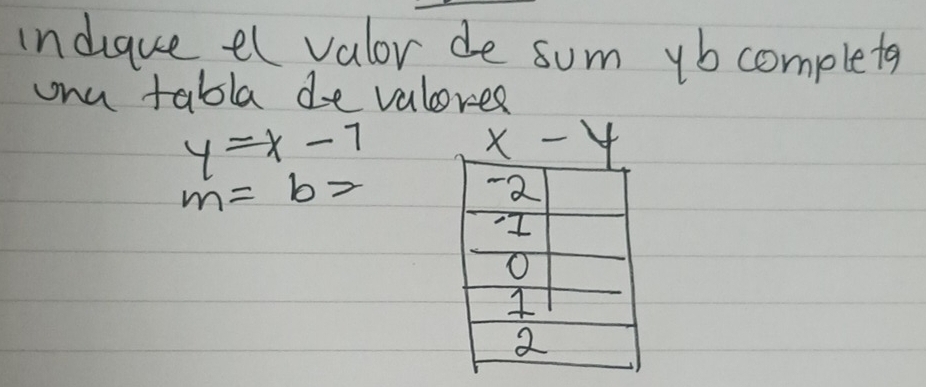 indique el valor de sum y b completa
una tabla de valores
y = x - 1
m = b =
x - y
-2
-1
0
1
2